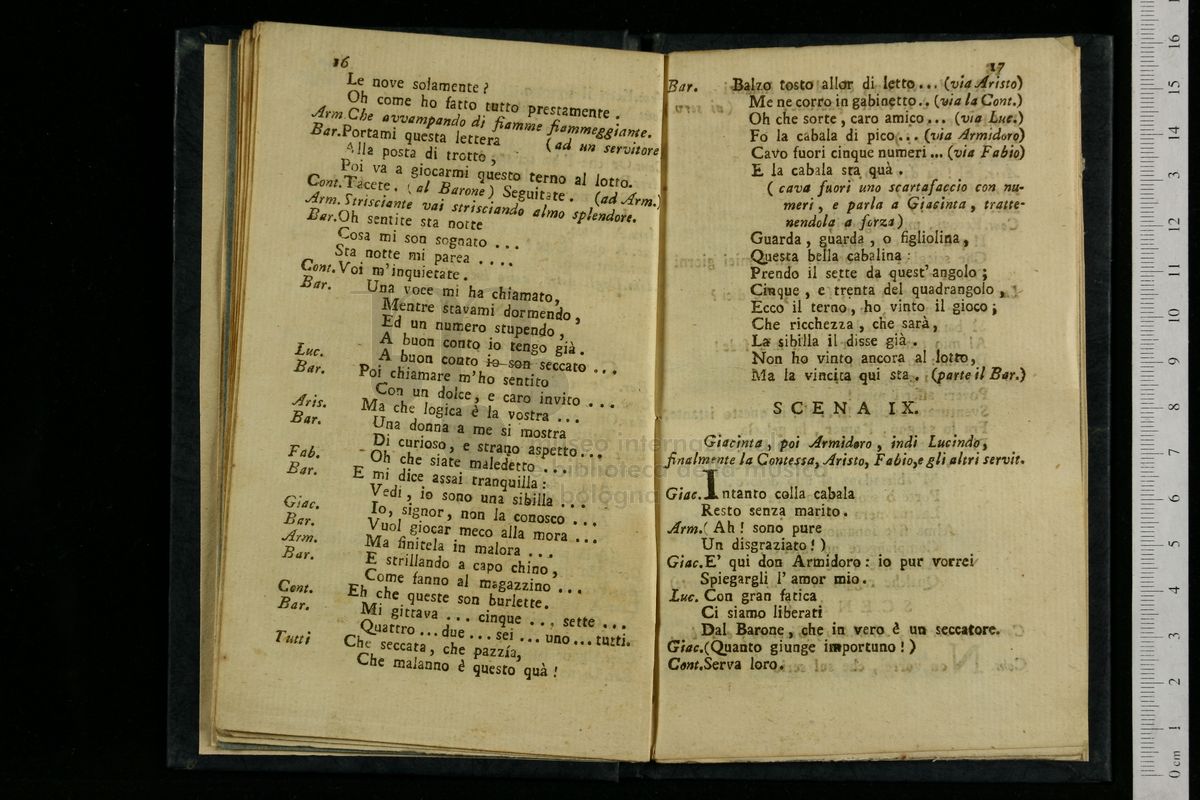 16
Le nove solamente ?
Oh come ho fatto tutto prestamente .
Arm. Che avvampando di fiamme fiammeggiante.
Bar. Portami questa lettera (ad un servitore
Alla posta di trotto ,
Poi va a giocarmi questo terno al lotto.
Cont. Tacete . ( al Barone ) Seguitate . (ad Arm.)
Arm. Strisciante vai strisciando almo splendore.
Bar. Oh sentite sta notte
Cosa mi son sognato ...
Sta notte mi parea ....
Cont. Voi m'inquietate .
Bar. Una voce mi ha chiamato,
Mentre stavami dormendo ,
Ed un numero stupendo ,
A buon conto io tengo già .
Luc. A buon conto io son seccato ...
Bar. Poi chiamare m'ho sentito
Con un dolce, e caro invito ...
Aris. Ma che logica è la vostra ...
Bar. Una donna a me si mostra
Di curioso, e strano aspetto ...
Fab. Oh che siate maledetto ...
Bar. E mi dice assai tranquilla :
Vedi, io sono una sibilla ...
Giac. Io, signor, non la conosco ...
Bar. Vuol giocar meco alla mora ...
Arm. Ma finitela in malora ...
Bar. E strillando a capo chino ,
Come fanno al magazzino ...
Cont. Eh che queste son burlette.
Bar. Mi gittava ... cinque ... sette ...
Quattro ... due ... sei ... uno ... tutti.
Tutti Che seccata, che pazzía,
Che malanno è questo quà !
17
Bar. Balzo tosto allor di letto ... (via Aristo)
Me ne corro in gabinetto .. (via la Cont.)
Oh che sorte , caro amico ... (via Luc.)
Fo la cabala di pico ... (via Armidoro)
Cavo fuori cinque numeri ... (via Fabio)
E la cabala sta quà .
( cava fuori uno scartafaccio con nu-
meri , e parla a Giacinta , tratte-
nendola a forza )
Guarda , guarda , o figliolina ,
Questa bella cabalina :
Prendo il sette da quest' angolo ;
Cinque , e trenta del quadrangolo ,
Ecco il terno , ho vinto il gioco ;
Che ricchezza , che sarà ,
La sibilla il disse già .
Non ho vinto ancora al lotto,
Ma la vincita qui sta . (parte il Bar.)
SCENA IX.
Giacinta , poi Armidoro , indi Lucindo ,
finalmente la Contessa, Aristo, Fabio, e gli altri servit.
Giac. Intanto colla cabala
Resto senza marito .
Arm. ( Ah ! sono pure
Un disgraziato ! )
Giac. E' qui don Armidoro : io pur vorrei
Spiegargli l' amor mio .
Luc. Con gran fatica
Ci siamo liberati
Dal Barone , che in vero è un seccatore.
Giac. (Quanto giunge importuno ! )
Cont. Serva loro .
museo internazionale
e biblioteca della musica
bologna
0 cm 1 2 3 4 5 6 7 8 9 10 11 12 13 14 15 16